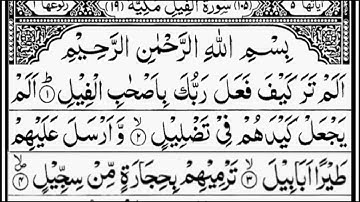 اٰیاتھا ٥ (١٠٥) سُوْرَةُ الْفِيْلِ مَكِّيَّةٌ (١٩) رکوعھا ١
بِسْمِ اللّٰهِ الرَّحْمٰنِ الرَّحِيْمِ
اَلَمْ تَرَ كَيْفَ فَعَلَ رَبُّكَ بِاَصْحٰبِ الْفِيْلِ ۝١ اَلَمْ
يَجْعَلْ كَيْدَهُمْ فِيْ تَضْلِيْلٍ ۝٢ وَّاَرْسَلَ عَلَيْهِمْ
طَيْرًا اَبَابِيْلَ ۝٣ تَرْمِيْهِمْ بِحِجَارَةٍ مِّنْ سِجِّيْلٍ ۝٤